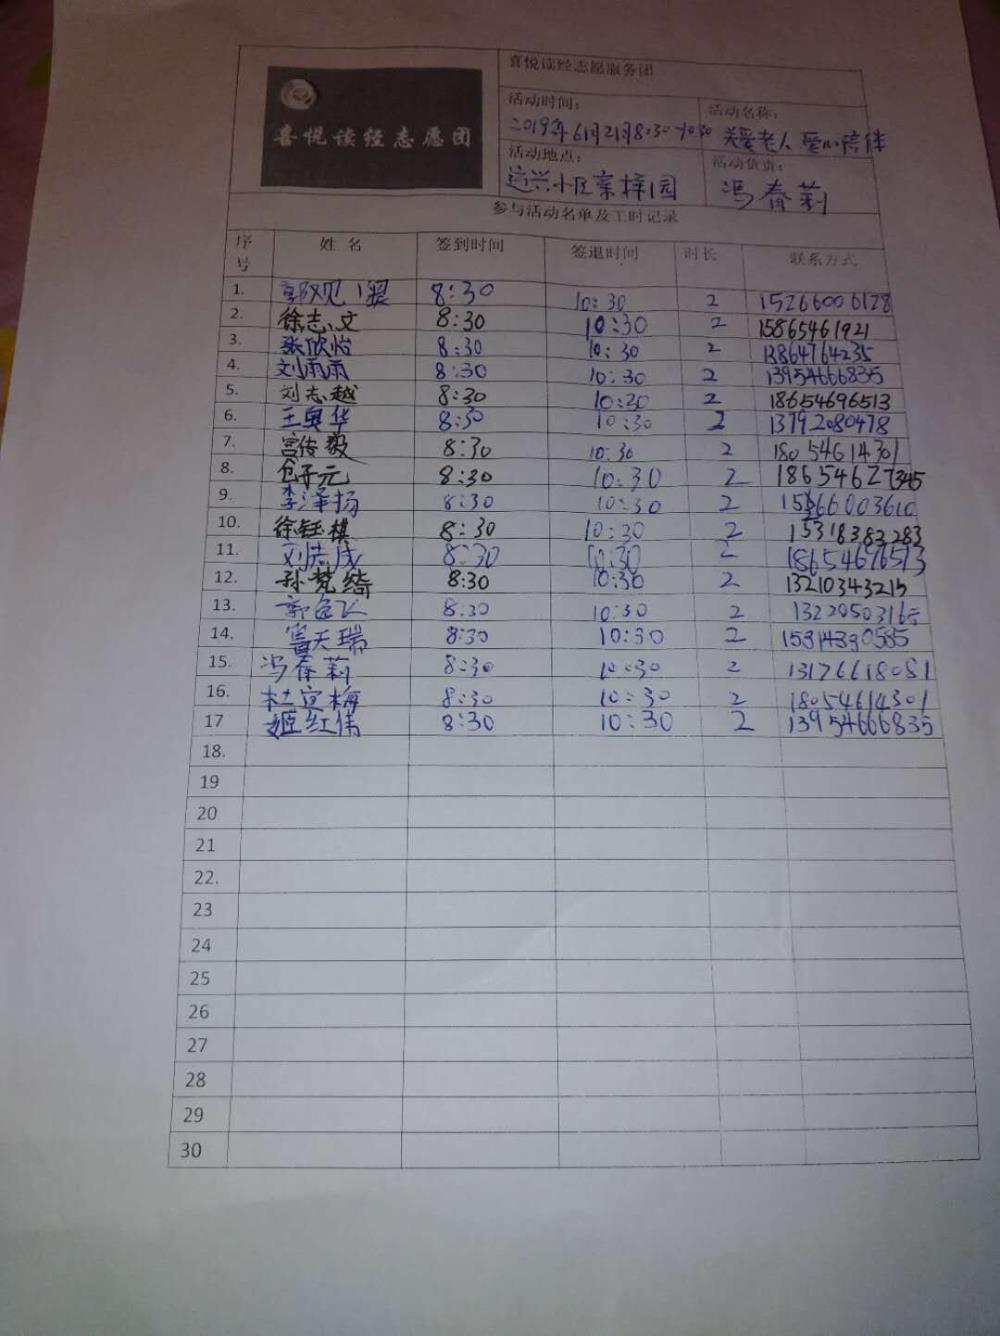 喜悦读经志愿团
喜悦读经志愿服务团
活动时间： 活动名称：
2019年6月21月8:30-10:30 关爱老人 爱心陪伴
活动地点： 活动负责：
小区 园 冯春莉
参与活动名单及工时记录
序号 姓名 签到时间 签退时间 时长 联系方式
1. 8:30 10:30 2 15266006128
2. 徐志文 8:30 10:30 2 15865461921
3. 张欣怡 8:30 10:30 2 13864764235
4. 刘雨雨 8:30 10:30 2 13954666835
5. 刘志越 8:30 10:20 2 18654696513
6. 王奥华 8:30 10:30 2 13792080478
7. 宫传毅 8:30 10:30 2 18054614301
8. 仓开元 8:30 10:30 2 18654627345
9. 李泽扬 8:30 10:30 2
10. 徐钰棋 8:30 10:30 2 15318383283
11. 8:30 10:30 2 18654696513
12. 孙梵绮 8:30 10:30 2 13210343215
13. 8:30 10:30 2
14. 天瑞 8:30 10:30 2
15. 冯春莉 8:30 10:30 2 13176618081
16. 杜宜梅 8:30 10:30 2 18054614301
17 姬红伟 8:30 10:30 2 13954666835
18.
19
20
21
22.
23
24
25
26
27
28
29
30